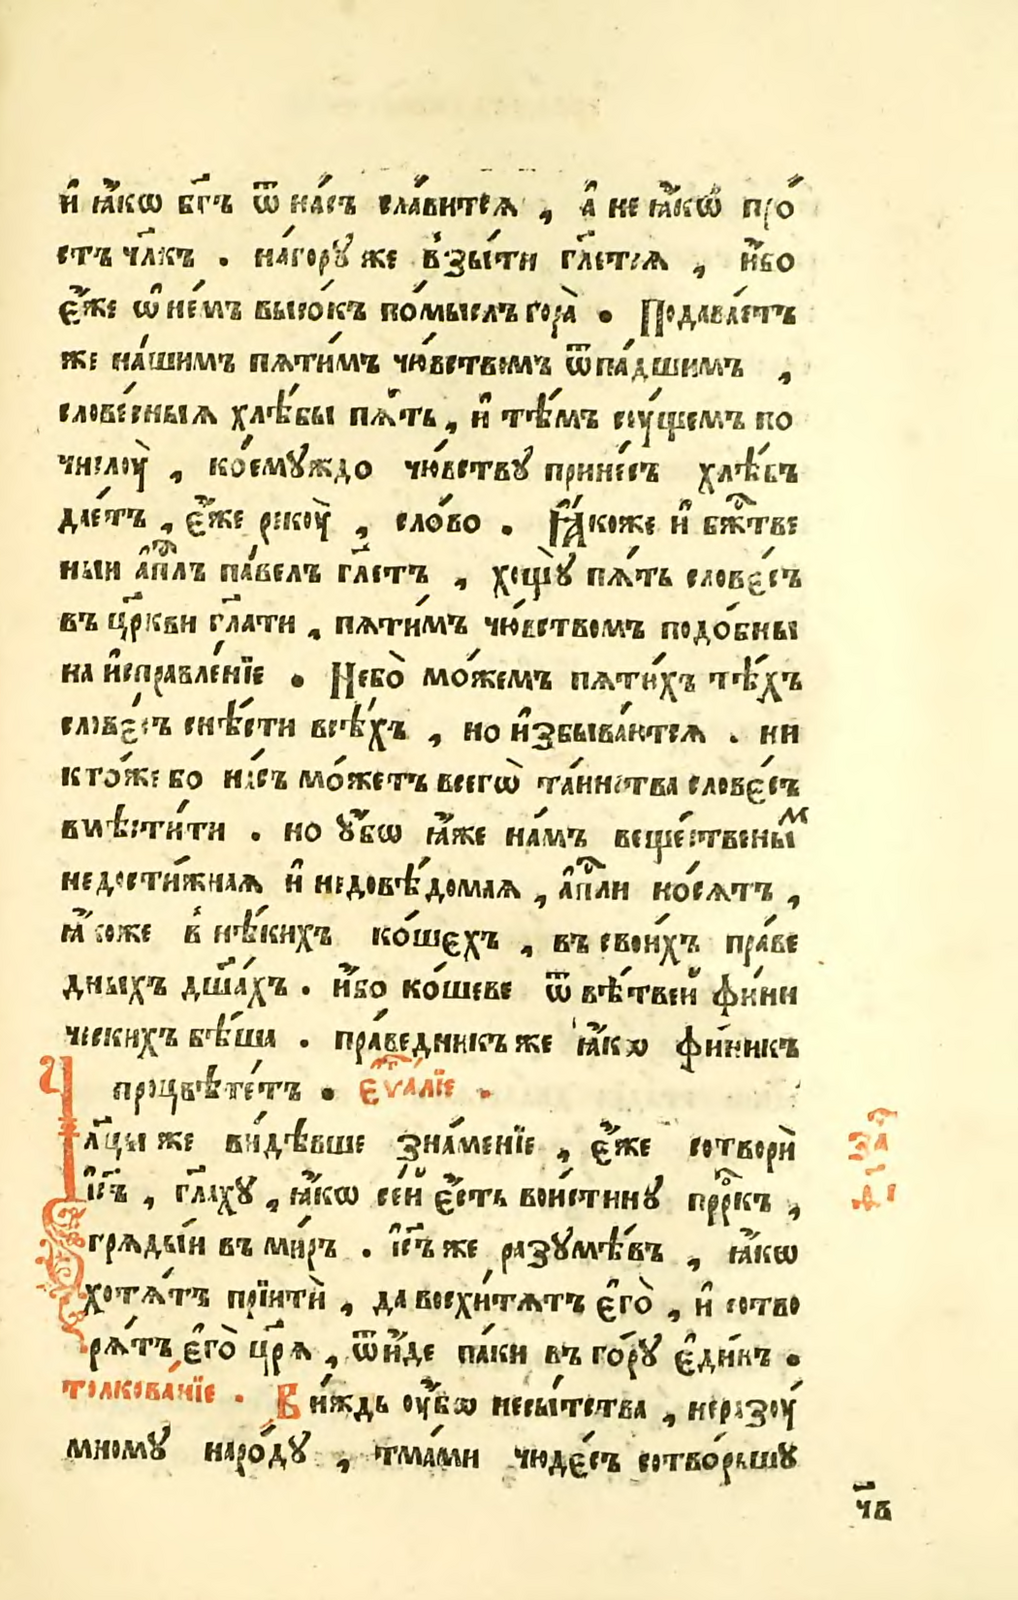 и҆ ꙗ҆́кѡ бг҃ъ ѿ на́съ сла́витсѧ , а҆ не ꙗ҆́кѡ про́
стъ чл҃къ . на́горꙋ же в҆зы́ти гл҃етсѧ , и҆́бо
є҆́же ѡ҆ не́мъ высо́къ по́мыслъ гора̀ . Подава́етъ
же на́шимъ пѧти́мъ чю́вствомъ ѿпа́дшимъ ,
слове́сныѧ хлѣ́бы пѧ́ть , и҆ тѣ́мъ соу́щемъ по
числоу̀ , коемꙋ́ждо чю́вствꙋ прине́съ хлѣ́бъ
дае́тъ , є҆́же рекоу̀ , сло́во . Ꙗ҆́коже и҆ бж҃тве
ныи а҆пⷭ҇лъ па́велъ гл҃етъ , хощꙋ̀ пѧ́ть словє́съ
въ цр҃кви гл҃ати , пѧти́мъ чю́вствомъ подо́бны
на и҆справле́нїе . Небо̀ мо́жемъ пѧти́хъ тѣ́хъ
словє́съ снѣ́сти всѣ́хъ , но и҆збыва́ютсѧ . ни
кто́же бо на́съ мо́жетъ всегѡ̀ та́инства словє́съ
вмѣсти́ти . но ᲂу҆́бѡ ꙗ҆́же на́мъ веще́ственыⷨ
недости́жнаѧ и҆ недовѣ́домаѧ , а҆пⷭ҇ли но́сѧтъ ,
ꙗ҆́коже в҆ нѣ́кихъ ко́шєхъ , въ свои́хъ пра́ве
дныхъ дш҃а́хъ . и҆́бо ко́шеве ѿ вѣ́твеи̾ фи́ни
ческихъ бѣ́ша . пра́ведникъ же ꙗ҆́кѡ фи́никъ
процвѣте́тъ . є҆ѵⷢ҇а́лїе .
Чл҃цы же ви́дѣвше зна́менїе , є҆́же сотвори̾
і҆с҃ъ , гл҃ахꙋ , ꙗ҆́кѡ се́й є҆́сть вои́стинꙋ прⷪ҇ркъ ,
грѧды́и въ ми́ръ . і҆с҃ъ же разꙋмѣ́въ , ꙗ҆́кѡ
хотѧ́тъ прїити̾ , да восхи́тѧтъ є҆го̀ , и҆ сотво
рѧ́тъ є҆го̀ цр҃ѧ , ѿи́де па́ки въ го́рꙋ є҆ди́нъ .
толкова́нїе . Ви́ждь оу҆́бѡ несы́тства , неразоу́
мномꙋ наро́дꙋ , тма́ми чюдє́съ сотво́рьшꙋ
заⷱ҇
д҃і
чв҃